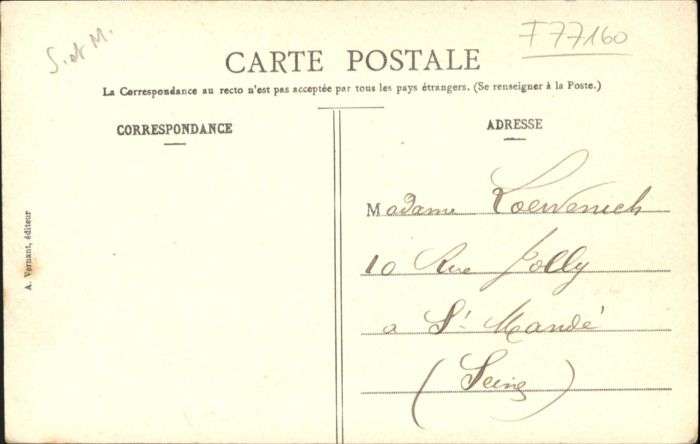 S. et M.
F77160
CARTE POSTALE
La Correspondance au recto n'est pas acceptée par tous les pays étrangers. (Se renseigner à la Poste.)
CORRESPONDANCE
A. Vernant, éditeur
ADRESSE
Madame Loewenich
10 Rue Jolly
a St Mandé
(Seine)